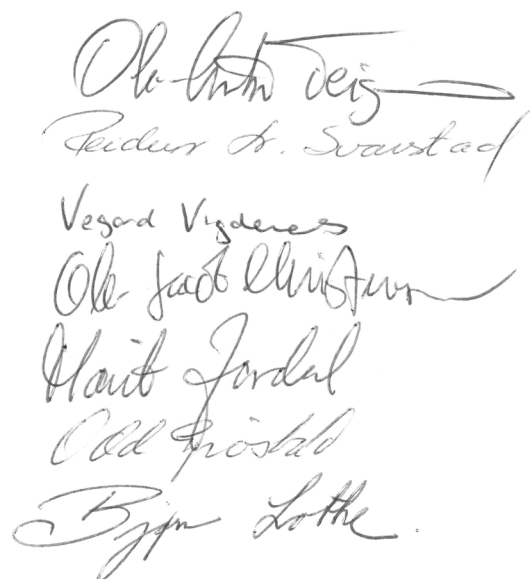 Ole-Anton Teigen
Reidun G. Svarstad
Vegard Vigdenes
Ole-Jacob Christensen
Marit Jordal
Odd
Bjørn Lothe